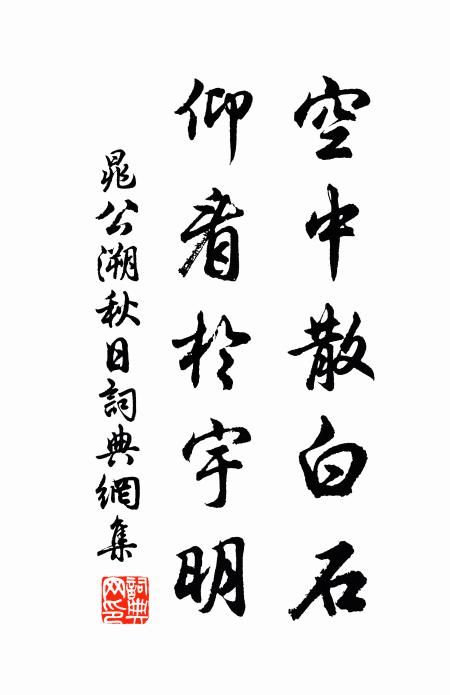 空中散白石
仰看於宇明
晁公溯秋日詞典網集
詞典网印